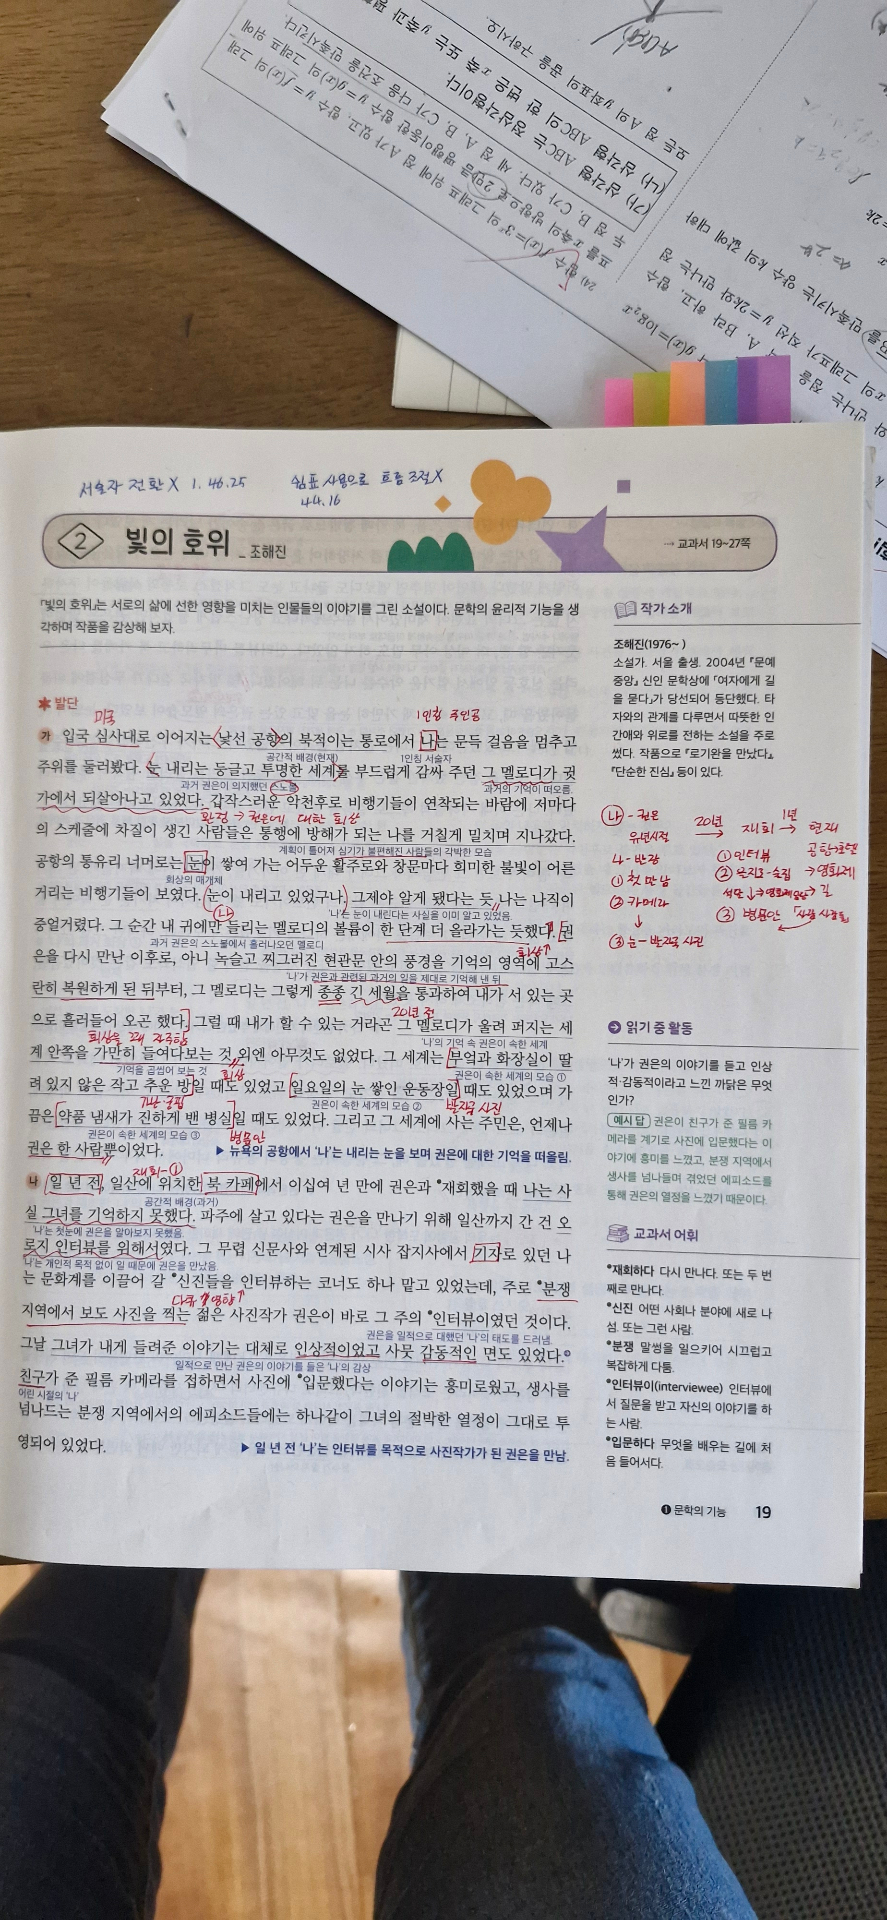 서술자 전환 X 1. 46. 25
쉼표 사용으로 흐름 조절 X
44. 16
2 빛의 호위 _ 조해진
→ 교과서 19~27쪽
「빛의 호위」는 서로의 삶에 선한 영향을 미치는 인물들의 이야기를 그린 소설이다. 문학의 윤리적 기능을 생
각하며 작품을 감상해 보자.
발단
미국
1인칭 주인공
가 입국 심사대로 이어지는 낯선 공항의 북적이는 통로에서 나는 문득 걸음을 멈추고
공간적 배경(현재)
1인칭 서술자
주위를 둘러봤다. 눈 내리는 둥글고 투명한 세계를 부드럽게 감싸 주던 그 멜로디가 귓
과거 권은이 의지했던 스노볼
과거의 기억이 떠오름.
가에서 되살아나고 있었다. 갑작스러운 악천후로 비행기들이 연착되는 바람에 저마다
환청 → 권은에 대한 회상
의 스케줄에 차질이 생긴 사람들은 통행에 방해가 되는 나를 거칠게 밀치며 지나갔다.
계획이 틀어져 심기가 불편해진 사람들의 각박한 모습
공항의 통유리 너머로는 눈이 쌓여 가는 어두운 활주로와 창문마다 희미한 불빛이 어른
회상의 매개체
거리는 비행기들이 보였다. 눈이 내리고 있었구나. 그제야 알게 됐다는 듯, 나는 나직이
나
'나'는 눈이 내린다는 사실을 이미 알고 있었음.
중얼거렸다. 그 순간 내 귀에만 들리는 멜로디의 볼륨이 한 단계 더 올라가는 듯했다. 권
과거 권은의 스노볼에서 흘러나오던 멜로디
회상↑
은을 다시 만난 이후로, 아니 녹슬고 찌그러진 현관문 안의 풍경을 기억의 영역에 고스
'나'가 권은과 관련된 과거의 일을 제대로 기억해 낸 뒤
란히 복원하게 된 뒤부터, 그 멜로디는 그렇게 종종 긴 세월을 통과하여 내가 서 있는 곳
20년 전
으로 흘러들어 오곤 했다. 그럴 때 내가 할 수 있는 거라곤 그 멜로디가 울려 퍼지는 세
'나'의 기억 속 권은이 속한 세계
계 안쪽을 가만히 들여다보는 것 외엔 아무것도 없었다. 그 세계는 부엌과 화장실이 딸
기억을 곱씹어 보는 것
회상
권은이 속한 세계의 모습 ①
려 있지 않은 작고 추운 방일 때도 있었고 일요일의 눈 쌓인 운동장일 때도 있었으며 가
가난·궁핍
권은이 속한 세계의 모습 ②
반장 사진
끔은 약품 냄새가 진하게 밴 병실일 때도 있었다. 그리고 그 세계에 사는 주민은, 언제나
권은이 속한 세계의 모습 ③
병문안
권은 한 사람뿐이었다.
▶ 뉴욕의 공항에서 '나'는 내리는 눈을 보며 권은에 대한 기억을 떠올림.
재회-①
나 일 년 전, 일산에 위치한 북 카페에서 이십여 년 만에 권은과 *재회했을 때 나는 사
공간적 배경(과거)
실 그녀를 기억하지 못했다. 파주에 살고 있다는 권은을 만나기 위해 일산까지 간 건 오
'나'는 첫눈에 권은을 알아보지 못했음.
로지 인터뷰를 위해서였다. 그 무렵 신문사와 연계된 시사 잡지사에서 기자로 있던 나
'나'는 개인적 목적 없이 일 때문에 권은을 만났음
는 문화계를 이끌어 갈 *신진들을 인터뷰하는 코너도 하나 맡고 있었는데, 주로 *분쟁
지역에서 보도 사진을 찍는 젊은 사진작가 권은이 바로 그 주의 *인터뷰이였던 것이다.
권은을 일적으로 대했던 '나'의 태도를 드러냄.
그날 그녀가 내게 들려준 이야기는 대체로 인상적이었고 사뭇 감동적인 면도 있었다.
일적으로 만난 권은의 이야기를 들은 '나'의 감상
친구가 준 필름 카메라를 접하면서 사진에 *입문했다는 이야기는 흥미로웠고, 생사를
어린 시절의 '나'
넘나드는 분쟁 지역에서의 에피소드들에는 하나같이 그녀의 절박한 열정이 그대로 투
영되어 있었다.
▶ 일 년 전 '나'는 인터뷰를 목적으로 사진작가가 된 권은을 만남.
작가 소개
조해진(1976~ )
소설가. 서울 출생. 2004년 『문예
중앙』 신인 문학상에 「여자에게 길
을 묻다」가 당선되어 등단했다. 타
자와의 관계를 다루면서 따뜻한 인
간애와 위로를 전하는 소설을 주로
썼다. 작품으로 『로기완을 만났다』,
『단순한 진심』 등이 있다.
나 - 권은 20년 재회 → 1년 현재
유년시절
나 - 반장
① 첫 만남
② 카메라
↓
③ 눈 - 반장 사진
① 인터뷰
③ 병문안
읽기 중 활동
'나'가 권은의 이야기를 듣고 인상
적·감동적이라고 느낀 까닭은 무엇
인가?
예시 답 권은이 친구가 준 필름 카
메라를 계기로 사진에 입문했다는 이
야기에 흥미를 느꼈고, 분쟁 지역에서
생사를 넘나들며 겪었던 에피소드를
통해 권은의 열정을 느꼈기 때문이다.
교과서 어휘
*재회하다 다시 만나다. 또는 두 번
째로 만나다.
*신진 어떤 사회나 분야에 새로 나
섬. 또는 그런 사람.
*분쟁 말썽을 일으키어 시끄럽고
복잡하게 다툼.
*인터뷰이(interviewee) 인터뷰에
서 질문을 받고 자신의 이야기를 하
는 사람.
*입문하다 무엇을 배우는 길에 처
음 들어서다.
❶ 문학의 기능 19
24) 함수 f(x)=3ˣ의 그래프 위에 점 A가 있고, 함수 y=f(x)의 그래
(가) 삼각형 ABC는 정삼각형이다.
(나) 삼각형 ABC의 한 변은 x축 또는 y축과 평
모든 점 A의 y좌표의 곱을 구하시오.